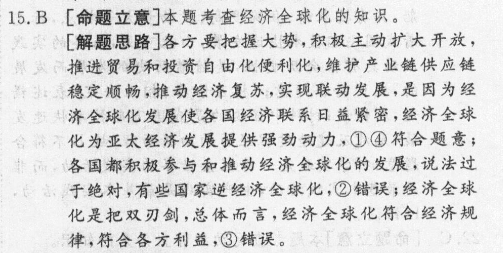 15. B [命题立意]本题考查经济全球化的知识。
[解题思路]各方要把握大势,积极主动扩大开放,
推进贸易和投资自由化便利化,维护产业链供应链
稳定顺畅,推动经济复苏,实现联动发展,是因为经
济全球化发展使各国经济联系日益紧密,经济全球
化为亚太经济发展提供强劲动力,①④符合题意;
各国都积极参与和推动经济全球化的发展,说法过
于绝对,有些国家逆经济全球化,②错误;经济全球
化是把双刃剑,总体而言,经济全球化符合经济规
律,符合各方利益,③错误。